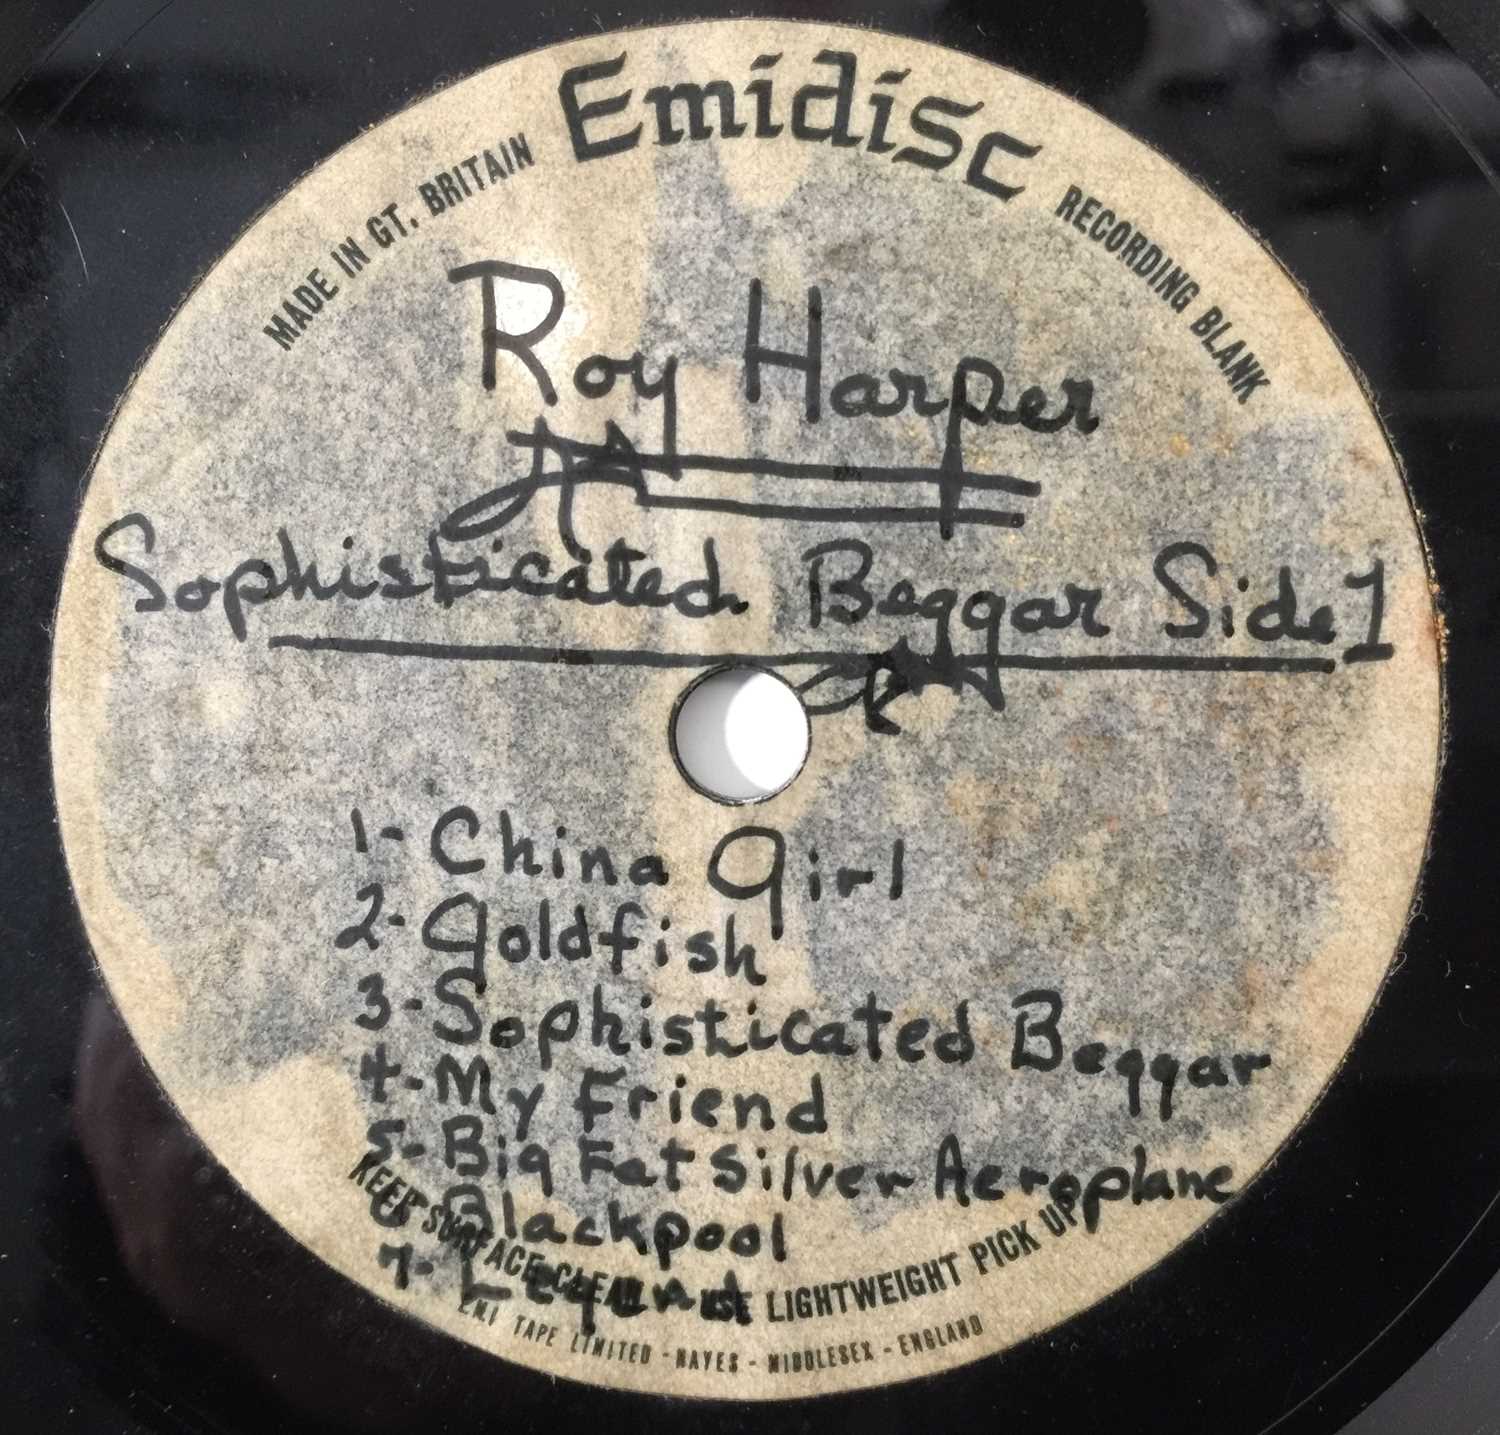 Emidisc
MADE IN GT. BRITAIN
RECORDING BLANK
Roy Harper
Sophisticated Beggar Side 1
1- China Girl
2- Goldfish
3- Sophisticated Beggar
4- My Friend
5- Big Fat Silver Aeroplane
6- Blackpool
7- Legend
KEEP SURFACE CLEAN - USE LIGHTWEIGHT PICK UP
EMI TAPE LIMITED - HAYES - MIDDLESEX - ENGLAND